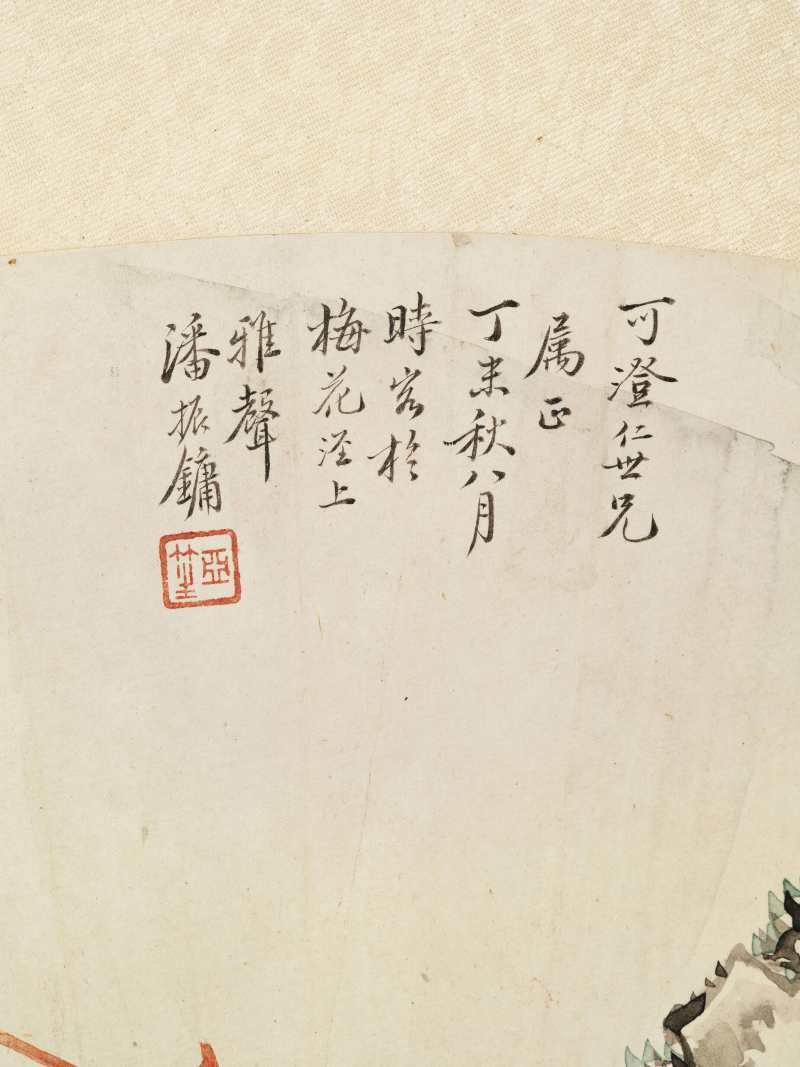 可澄仁世兄
属正
丁未秋八月
時客於
梅花涇上
雅聲
潘振鏞
亞笙